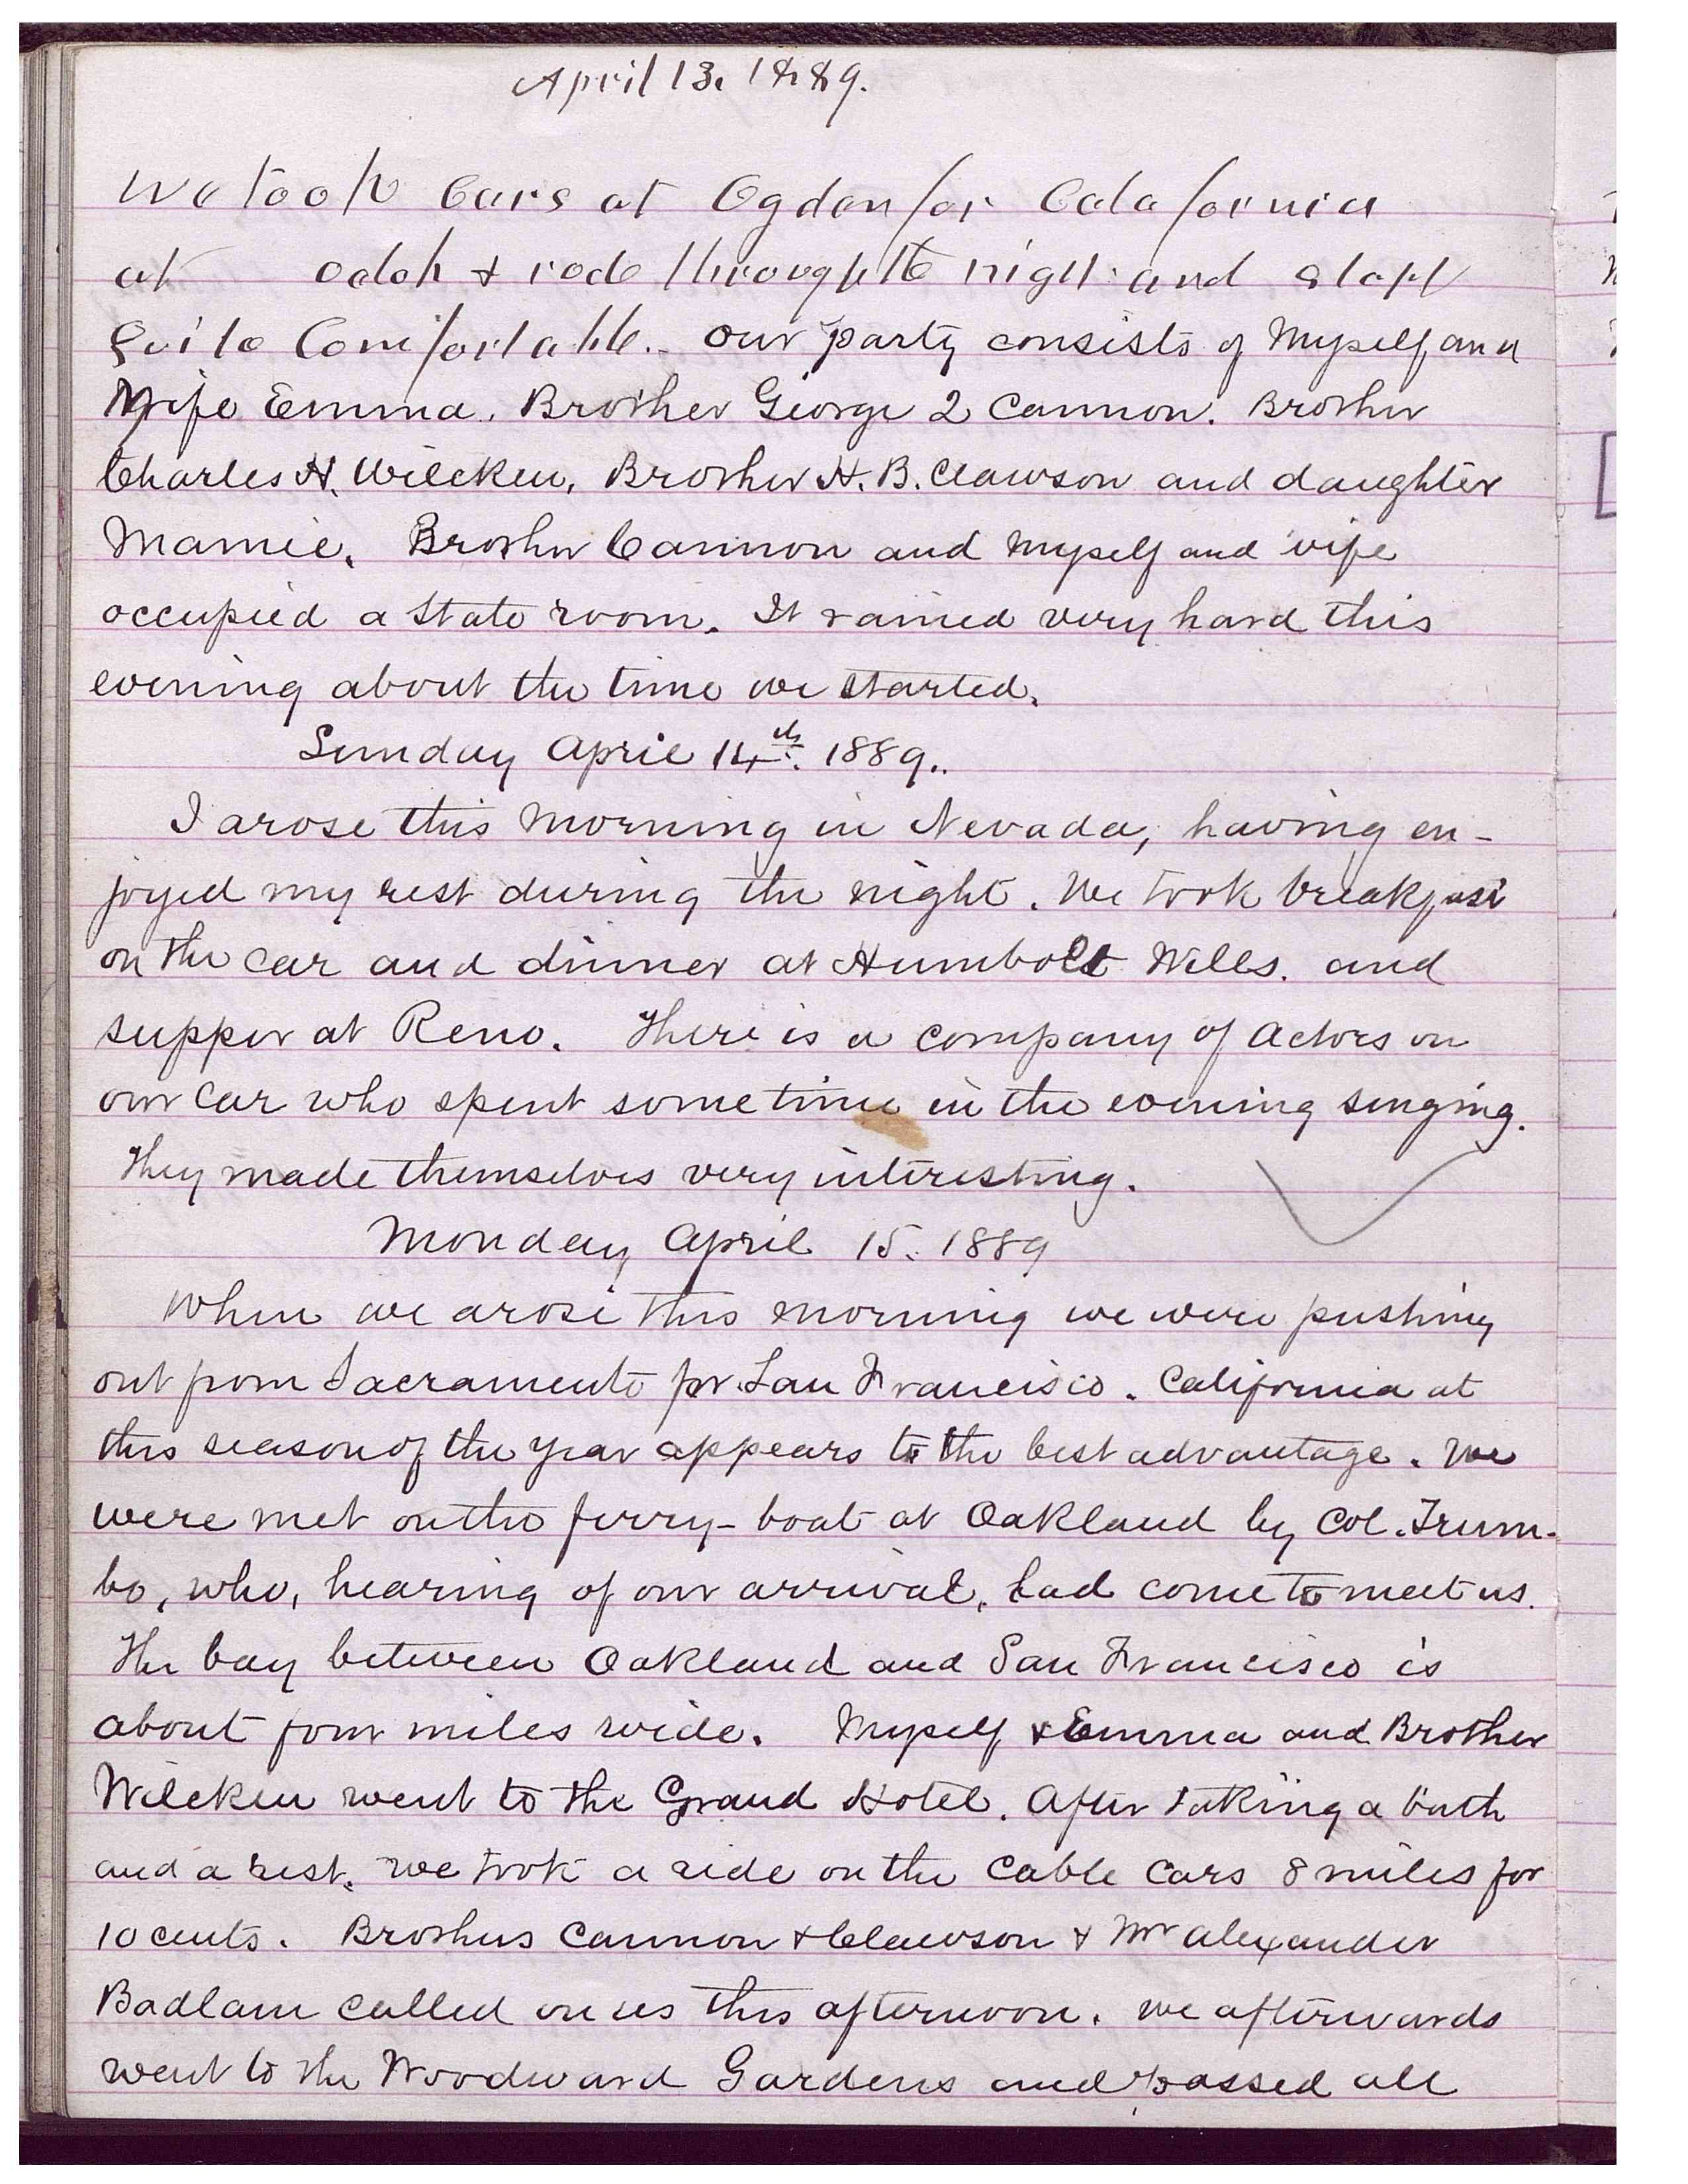 April 13. 1889.
We took Cars at Ogden for Calafornia
at oclok & rode through the night and slept
Quite Comfortable. Our party consists of Myself and
Wife Emma. Brother George Q Cannon. Brother
Charles H. Wilcken, Brother H. B. Clawson and daughter
Mamie. Brother Cannon and myself and wife
occupied a State room. It rained very hard this
evening about the time we started.
Sunday April 14th. 1889..
I arose this Morning in Nevada, having en-
joyed my rest during the night. We took breakfast
on the car and dinner at Humbolt Wells. and
supper at Reno. There is a company of actors on
our car who spent sometime in the evening singing.
They made themselves very interesting.
Monday April 15. 1889
When we arose this morning we were pushing
out from Sacramento for San Francisco. California at
this season of the year appears to the best advantage. We
were met on the ferry-boat at Oakland by Col. Trum-
bo, who, hearing of our arrival, had come to meet us.
The bay between Oakland and San Francisco is
about four miles wide. Myself & Emma and Brother
Wilcken went to the Grand Hotel. After taking a bath
and a rest. we took a ride on the Cable Cars 8 miles for
10 cents. Brothers Cannon & Clawson & Mr Alexander
Badlam called on us this afternoon. We afterwards
went to the Woodward Gardens and passed all